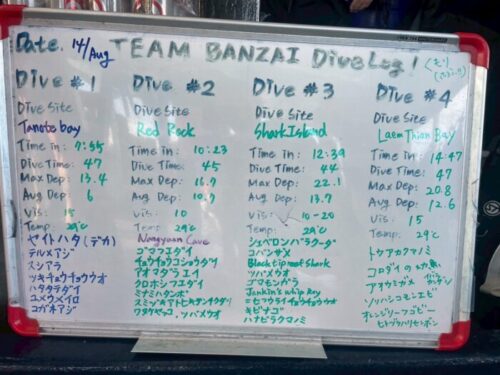 Date. 14/Aug TEAM BANZAI DiveLog!
Dive #1
Dive Site
Tanote bay
Time in: 7:55
Dive Time: 47
Max Dep: 13.4
Avg Dep: 6
Vis: 15
Temp: 29°C
ヤイトハタ(デカ)
テルメアジ
スジアラ
ツキチョウチョウウオ
ハタタテダイ
ユメウメイロ
コガネアジ
Dive #2
Dive Site
Red Rock
Time in: 10:23
Dive Time: 45
Max Dep: 16.7
Avg Dep: 10.7
Vis: 10
Temp: 29°C
Nangyuan Cave
ゴマフエダイ
アオマダラエイ
クロホシフエダイ
ミナミハタンポ
ワヌケヤッコ、ツバメウオ
Dive #3
Dive Site
Shark Island
Time in: 12:39
Dive Time: 44
Max Dep: 22.1
Avg Dep: 13.9
Vis: 10-20
Temp: 29°C
シェベロンバラクーダ
コバンザメ
Black tip reef Shark
ツバメウオ
ゴマモンガラ
Jenkin's whip Ray
キビナゴ
ハナビラクマノミ
Dive #4
Dive Site
Laem Thian Bay
Time in: 14:47
Dive Time: 47
Max Dep: 20.8
Avg Dep: 12.6
Vis: 15
Temp: 29°C
トウアカクマノミ
コロダイ
アオウミガメ
オレンジリーフゴビー
ヒトヅラハリセンボン